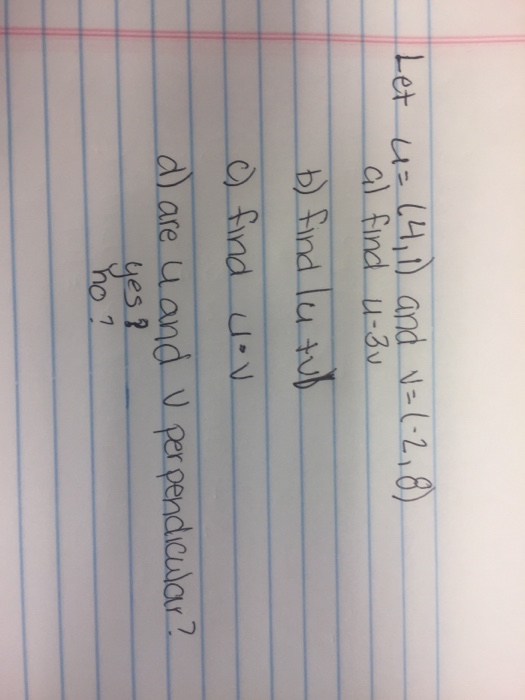 Let u = (4,1) and v = (-2,8)
a) find u-3v
b) find |u+v|
c) find u•v
d) are u and v perpendicular?
yes?
no?